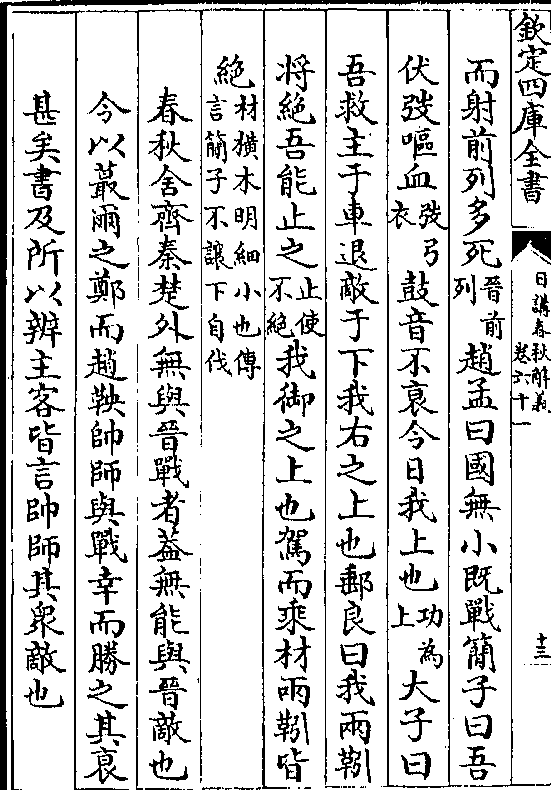 欽定四庫全書
日講春秋解義
卷六十一
十三
而射前列多死晉前列趙孟曰國無小既戰簡子曰吾
伏弢嘔血弢弓衣鼓音不衰今日我上也功為上大子曰
吾救主于車退敵于下我右之上也郵良曰我兩靷
将絶吾能止之止使不絶我御之上也駕而乘材兩靷皆
絶材横木明細小也傳言簡子不讓下自伐
春秋舍齊秦楚外無與晉戰者葢無能與晉敵也
今以蕞爾之鄭而趙鞅帥師與戰幸而勝之其衰
甚矣書及所以辨主客皆言帥師其衆敵也